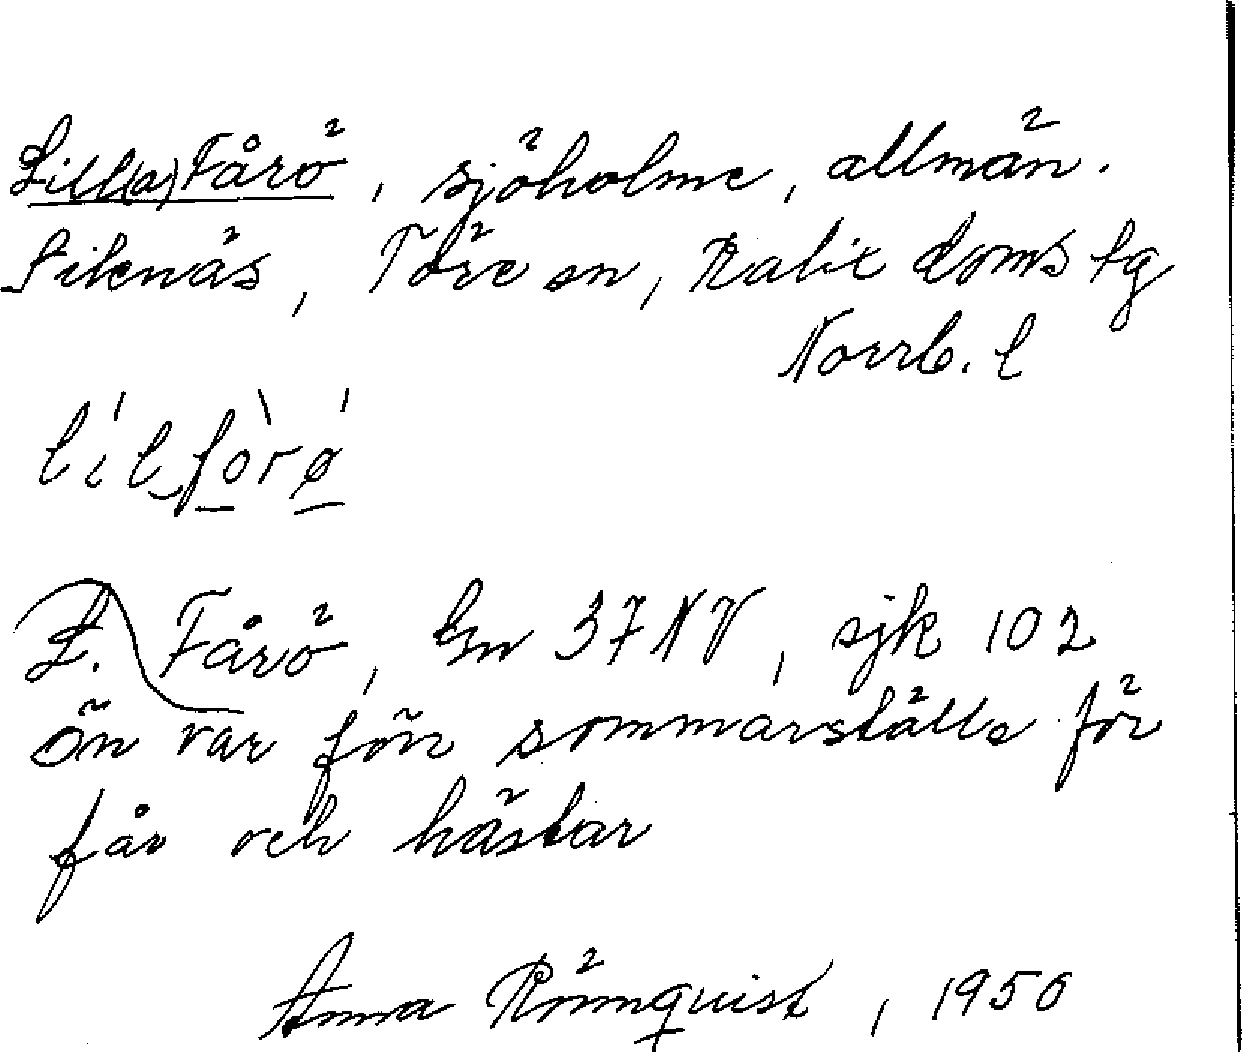 Lill(a) Fårö, sjöholme, allmän.
Siknäs, Töre sn, Kalix doms tg
Norrb. l
lílfòrǿ
L. Fårö, Gn 37 NV, sjk 102
Ön var förr sommarställe för
får och hästar
Anna Rönnquist, 1950